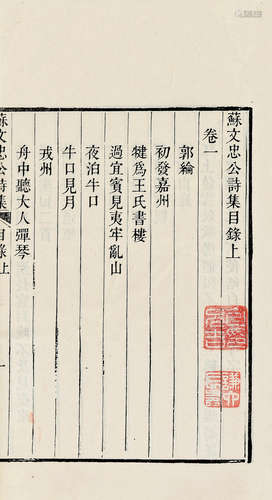 蘇文忠公詩集目錄上
卷一
郭綸
初發嘉州
犍爲王氏書樓
過宜賓見夷牢亂山
夜泊牛口
牛口見月
戎州
舟中聽大人彈琴
蘇文忠公詩集
目錄上
一